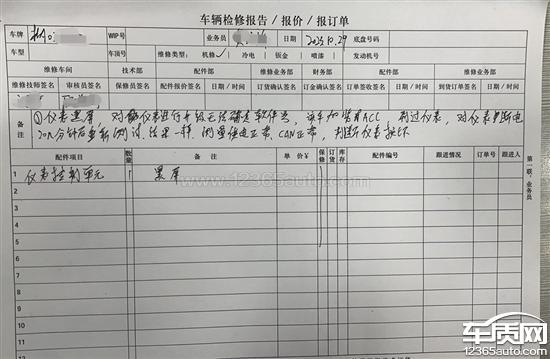 车辆检修报告/报价/报订单
车牌 WIP号 业务员 日期 2023.10.29 底盘号码
车型 车顶号 维修类型: 机修 冷电 钣金 喷漆 发动机号
维修车间 技术部 配件部 维修业务部 财务部 维修业务部 配件部 维修业务部
维修技师签名 审核员签名 保修员签名 配件报价签名 日期/时间 订金确认签名 订金确认签名 订单签收签名 日期/时间 到货订单签名 日期/时间
备注 ①仪表黑屏,对 仪表进行升级无法 软件号,该车加装有ACC, 过仪表,对仪表断电
20分钟后重新测试,结果一样,测量供电正常,CAN正常,判断仪表损坏
配件项目 数量 备注 单价¥ 保修 订货 库存 配件编号 跟进情况 订单号 跟进人
1 仪表控制单元 1 黑屏
2
3
4
5
6
7
8
9
10
11
12
第一联:业务员
www.12365auto.com
车质网
12365auto.com